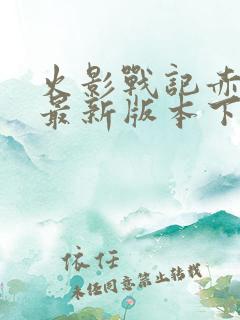 火影戰記赤
最新版本下
依任
未任同意禁止转载